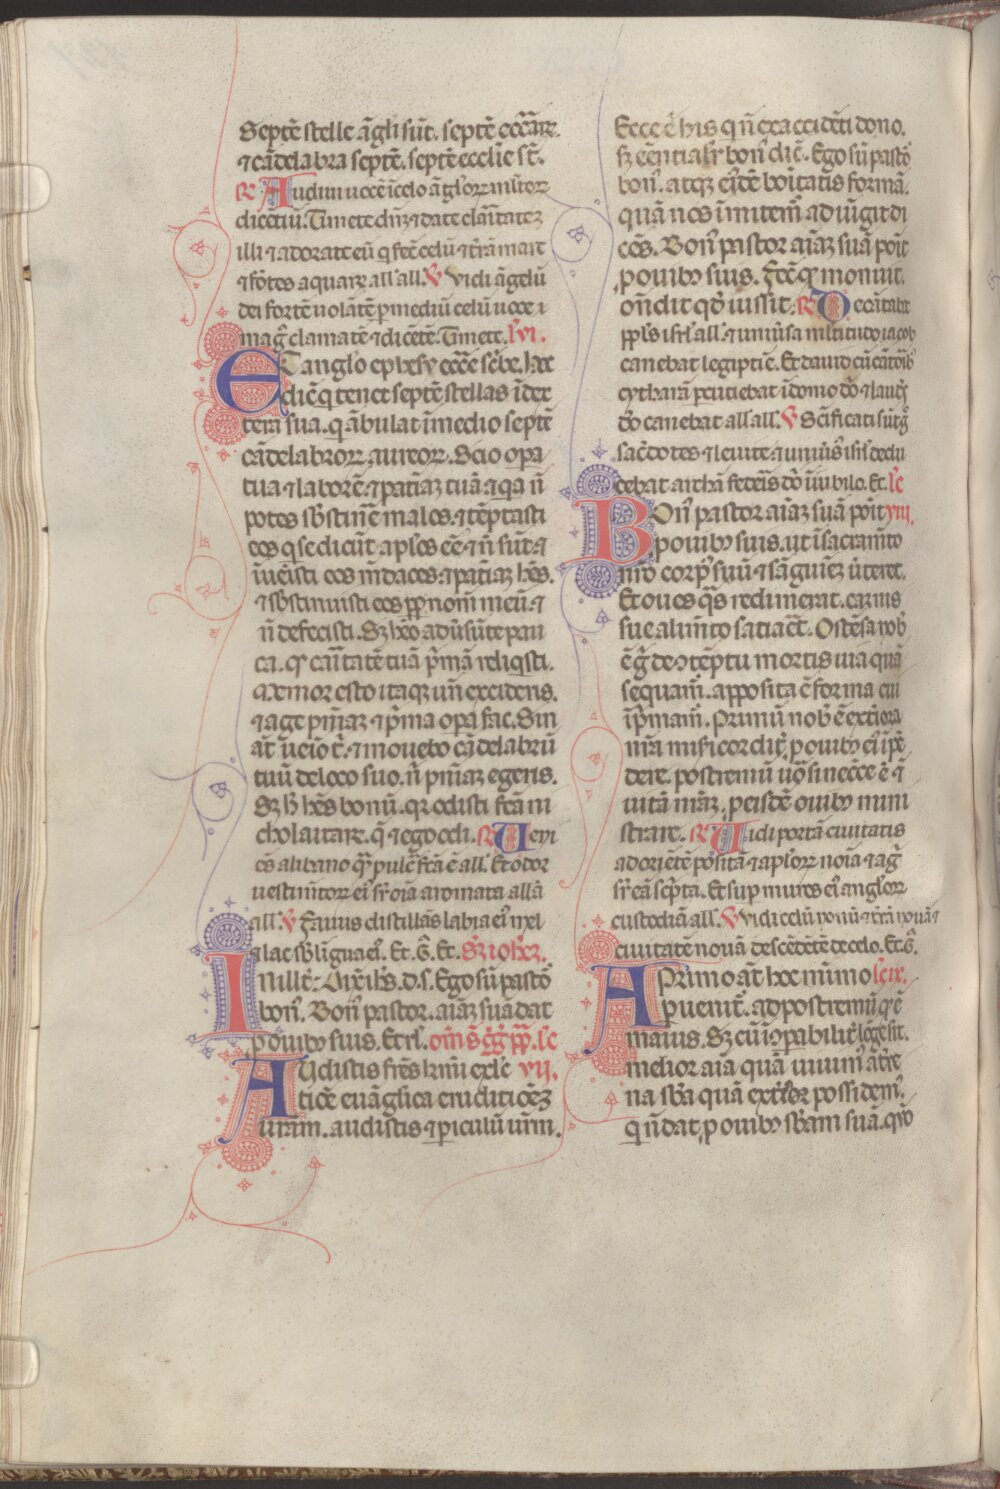 Septē stelle āgli sūt. septē ecc̄arꝝ.
⁊ cādelabra septē. septē ecclie st̄.
℟ Audiui uocē ī celo āgloꝝ mltoꝝ
dicētiū. Timete dn̄ꝫ ⁊ date claritateꝫ
illi ⁊ adorate eū q̇ fec̄ celū ⁊ t̄rā mare
⁊ fōtes aquaꝝ all' all'. ℣ Vidi āgelū
dei fortē uolātē ꝑ mediū celū uoce ī
maḡ clamatē ⁊ dicētē. Timete. l'vi.
Et anglo ephesy ecc̄e sc̄be. hec
dic̄ q̇ tenet septē stellas ī dex
tera sua. q̇ ābulat ī medio septē
cādelabroꝝ aureoꝝ. Scio opa
tua ⁊ laborē. ⁊ patiāꝫ tuā. ⁊ qa n̄
potes sb̄stinē malos. ⁊ tēptasti
eos q̇ se dicūt apl'os ēē ⁊ n̄ sūt. ⁊
īuēisti eos m̄daces. ⁊ patiāꝫ hēs.
⁊ sb̄stinuisti eos ꝓp nom̄ meū. ⁊
n̄ defecisti. Sꝫ hēo adūsū te pau
ca. qꝫ caritatē tuā p̄mā reliq̇sti.
Memor esto itaqꝫ un̄ excideris.
⁊ age pn̄iaꝫ ⁊ p̄ma opa fac. Sin
aūt uēio t̄. ⁊ mouebo cādelabrū
tuū de loco suo. n̄ pn̄iaꝫ egeris.
Sꝫ h̄ hēs bonū. qꝫ odisti fc̄a ni
cholaitaꝝ. q̄ ⁊ ego odi. ℟ Veni
ēs a libano q̄ꝫ pulc̄ fc̄a ē all'. Et odor
uestim̄toꝝ eiꝰ sr̄ oīa aromata allā
all'. ℣ Fauus distillās labia eiꝰ mel
⁊ lac sb̄ ligua eiꝰ. Et. G. Et. Sꝫ ioh̄eꝫ.
In ill' t̄. Dix̄ ih̄s. d. s. Ego sū pastō
bonꝰ. Bonꝰ pastor. aīaꝫ suā dat
ꝓ ouibꝫ suis. Et rl'. om̄. s̄. gg̃. pp̄. le
Audistis fr̄es kmi ex le vij.
tiōe euāglica eruditiōeꝫ
urām. audistis ⁊ ꝑiculū ur̄m.
Ecce ē his q̇ n̄ ex accidēti dono.
sꝫ eēntialit̄ bonꝰ dic̄. Ego sū pastō
bonꝰ. atqꝫ eiꝰdē boītatis formā.
quā nos īmitem̄ adiūgit di
cēs. Bonꝰ pastor aīaꝫ suā poīt
ꝓ ouibꝫ suis. Fec̄ q̇ monuit.
on̄dit qd̄ iussit. ℟ Decātabat
ppl's isrl' all'. ⁊ uniūsa mltitudo iacob
canebat legiptīe. Et dauid cū cātoribꝫ
cytharā ꝑcutiebat ī domo dō ⁊ laudꝭ
dō canebat all' all'. ℣ Sc̄ificati sūt g̊
sac̄dotes ⁊ leuite. ⁊ uniūsꝰ isrl' dedu
cebat archā fed̄eis dn̄i ī iubilo. Et. le
Bonꝰ pastor aīaꝫ suā poīt viij.
ꝓ ouibꝫ suis. ut ī sacram̄to
nr̄o corpꝰ suū ⁊ sāguīeꝫ ūteret.
Et oues q̄s redimerat. carnis
sue alim̄to satiaret. Ostēsa nob̄
ē g̊ de ꝯtēptu mortis uia quā
sequam̄. apposita ē forma cui
īpmam̄. Primū nob̄ ē exteriora
nr̄a misericordit̄ ꝓ ouibꝫ eiꝰ īpē
dere. postremū uō si necce ē. ⁊
uitā nr̄aꝫ. ꝓ eisdē ouibꝫ mini
strare. ℟ Vidi portā ciuitatis
ad oriētē positā ⁊ apl'oꝝ noīa ⁊ ag̅
sr̄ eā sc̄pta. Et sup muros eiꝰ angloꝝ
custodiā all'. ℣ Vidi celū nouū ⁊ t̄rā nouā ⁊
ciuitatē nouā descēdētē de celo. Et. G̅.
A primo aūt hoc mīmo l'eix.
puenit̄. ad postremū q̇ ē
maius. Sꝫ cū īꝯpabilit̄ lōge sit.
melior aīa quā uiuimꝰ āt̄re
na sb̄a quā exteriꝰ possidemꝰ.
q̇ n̄ dat ꝓ ouibꝫ sb̄am suā. qn̄o